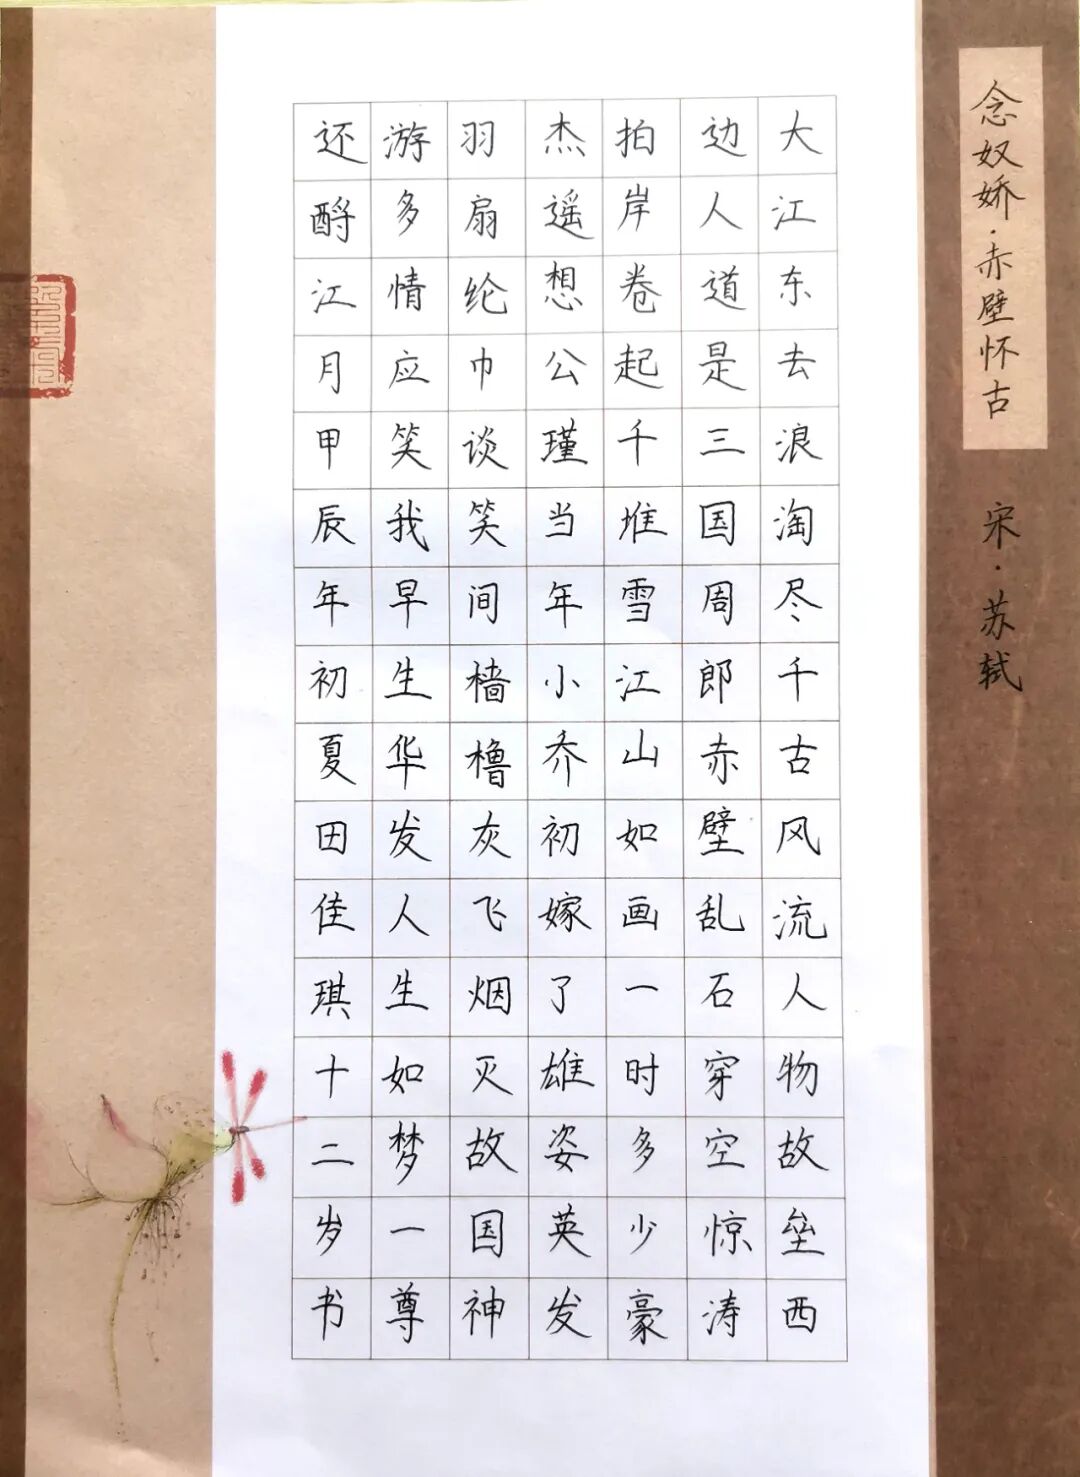 念奴娇·赤壁怀古 宋·苏轼
大江东去浪淘尽千古风流人物故垒西
边人道是三国周郎赤壁乱石穿空惊涛
拍岸卷起千堆雪江山如画一时多少豪
杰遥想公瑾当年小乔初嫁了雄姿英发
羽扇纶巾谈笑间樯橹灰飞烟灭故国神
游多情应笑我早生华发人生如梦一尊
还酹江月甲辰年初夏田佳琪十二岁书